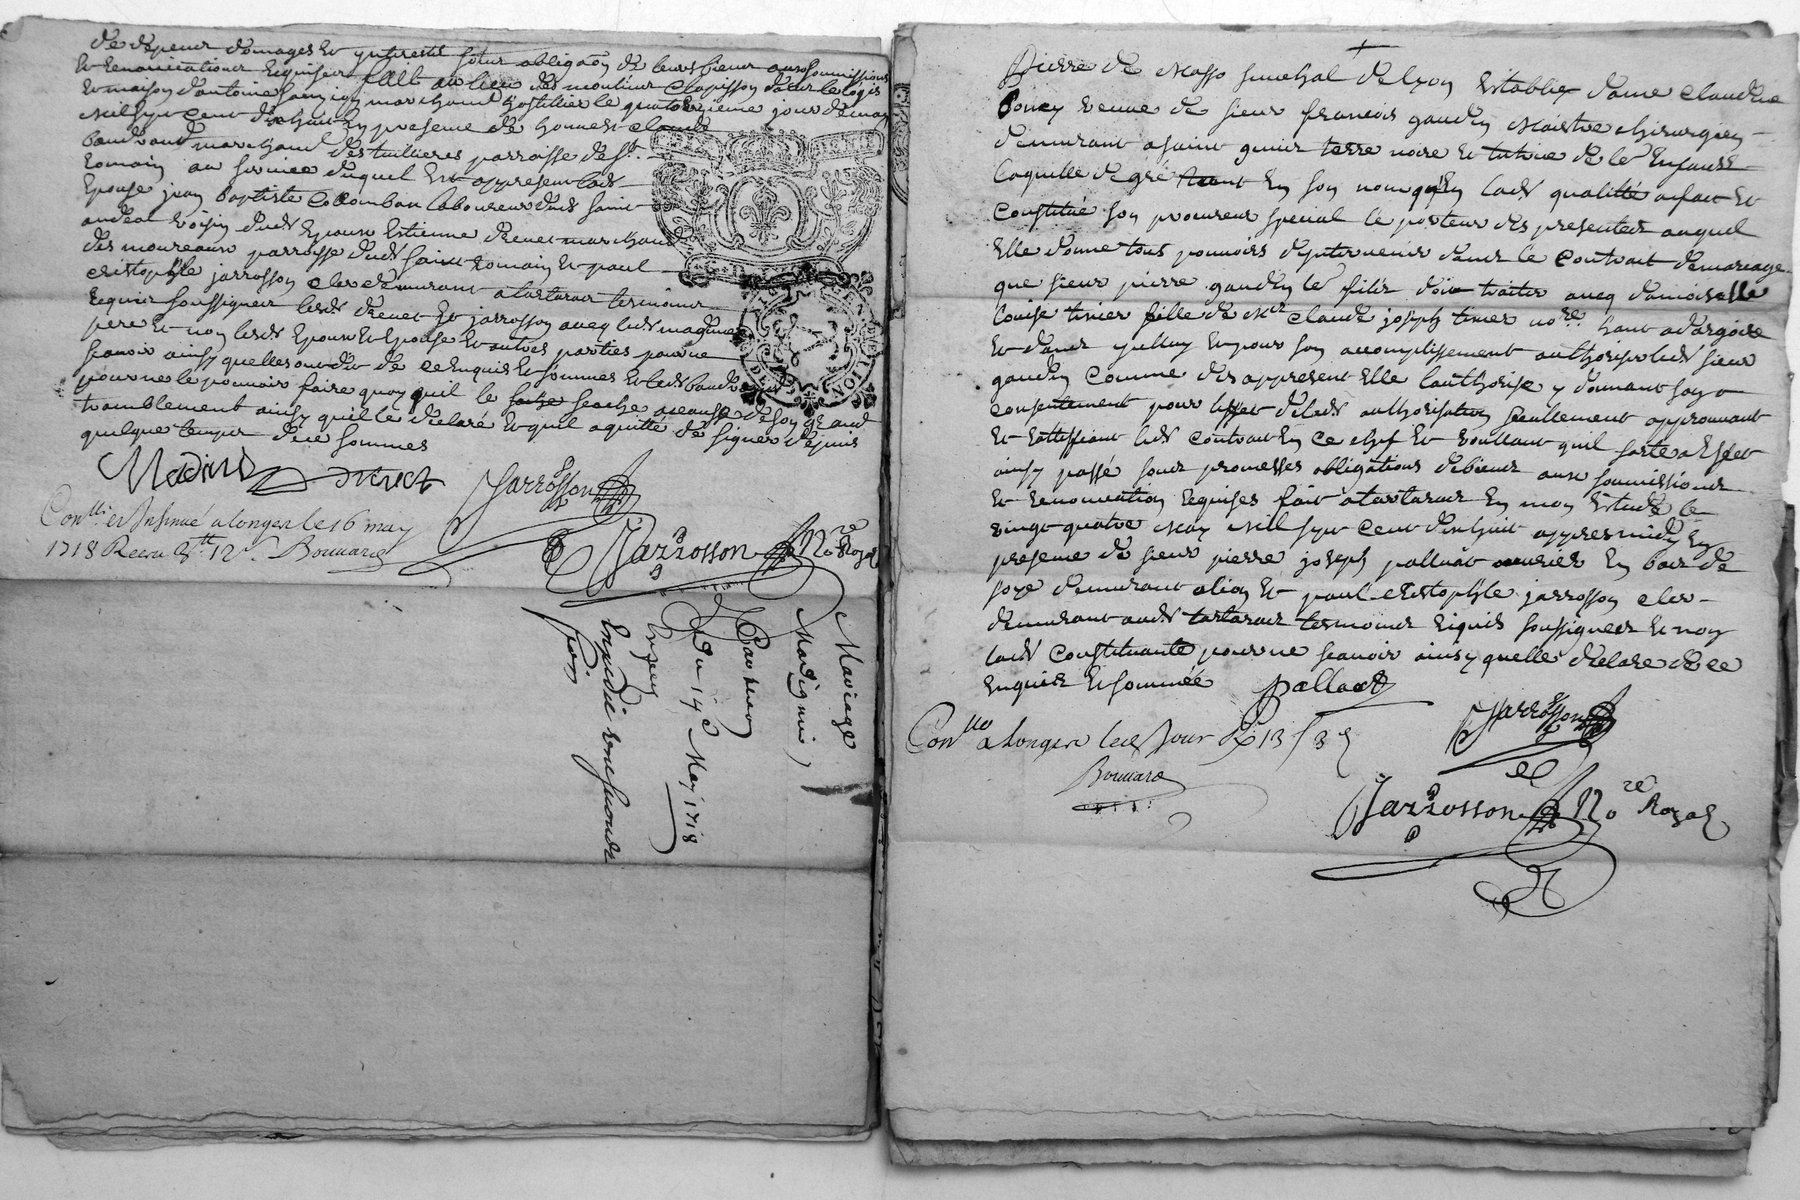 de depens domages et interests sous obligaõn de leurs biens aux soumissions
et renonciations requises fait au lieu des moulins Clapisson dans le logis
et maison d'antoine marchand hostellier le quatorzieme jour de may
mil sept cent dix huit en presence de honnest claude
baudrand marchand des tuillieres parroisse de St.
romain au service duquel est appresent lad.
Epouse jean baptiste Colomban laboureur dud saint
andeol voisin dud Epoux Estienne drevet marchand
des moureaux parroisse dud saint romain et paul
cristophle jarrosson clerc demurant a tartaras tesmoins
requis soussignes lesd drevet et jarrosson avec led madinier
pere et non lesd Epoux et Epouse et autres parties pour ne
scavoir ainsy quelles ont dit de ce enquis et sommes et led baudrand
pour ne le pouvoir faire quoy quil le sache a cause de son grand
tramblement ainsy quil le declaré et quil a quitté de signer depuis
quelque temps de ce sommés
Madinie Drevet Jarrosson
Conllé et Insinué a longes le 16 may
1718 Receu 12 s. Bouvard
Jarrosson No.re Royal
Mariage
Madignier
Du 14e May 1718
Expedié une seconde
fois
Pierre de Masso senechal de lyon Establie dame claudine
Poncy veuve de sieur francois gaudin Maistre chirurgien
demurant a saint genis terre noire et tutrice de les Enfants
Laquelle de gré tant En son nom qu'En lad qualitté a fait et
Constitué son procureur special le porteur des presentes auquel
Elle donne tous pouvoirs d'intervenir dans le Contrait de mareage
que sieur pierre gaudin le fils doit traiter aveq damoiselle
louise tivier fille de Mre claude joseph tivier nore. haut a dargoire
et dans yselluy et pour son accomplissement authoriser led sieur
gaudin Comme des appresent Elle lauthorise y donnant son
consentement pour leffet de lad authorisation seullement approuvant
et rattiffiant led contrait En ce chef et voullant quil sorte a Effet
ainsy passé sous promesses obligations de biens aux soumissions
et renonciation requises fait a tartaras En mon Estude le
vingt quatre May Mil sept cent dix huit appres midy En
presence de sieur pierre joseph palluat ouvrier En bas de
soye demurant a lion et paul cristophle jarrosson clerc
demurant aud tartaras tesmoins requis soussignes et non
lad Constituante pour ne scavoir ainsy quelle declare de ce
Enquise et sommée Palluat
Jarrosson
Conllé a Longes led Jour R 13 s 3 d
Bouvard
Jarrosson No.re Royal